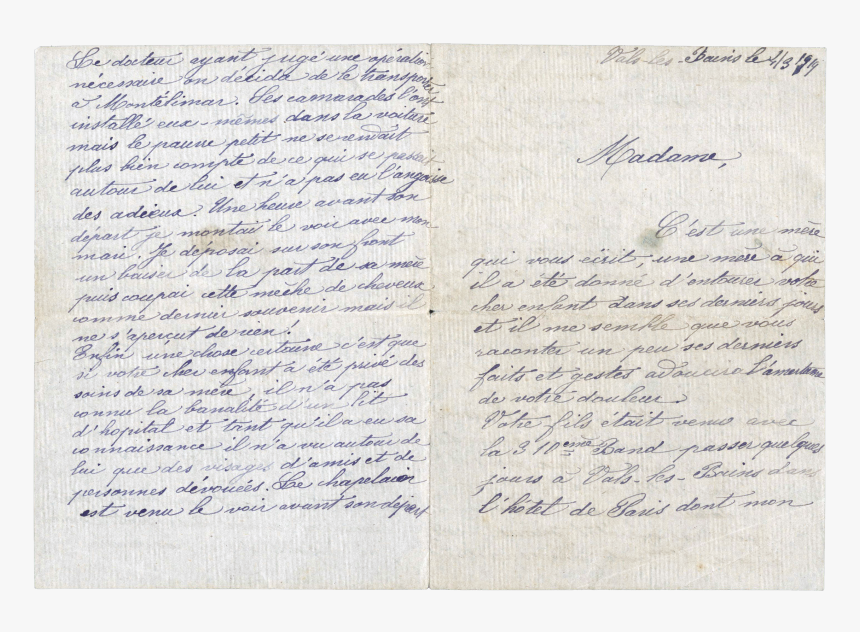 Vals-les-Bains le 2/3 1919
Madame,
C'est une mère
qui vous écrit, une mère à qui
il a été donné d'entourer votre
cher enfant dans ses derniers jours
et il me semble que vous
raconter un peu ses derniers
faits et gestes adoucira l'amertume
de votre douleur.
Votre fils était venu avec
la 310eme Band passer quelques
jours à Vals-les-Bains dans
l'hôtel de Paris dont mon
Le docteur ayant jugé une opération
nécessaire on décida de le transporter
à Montélimar. Ses camarades l'ont
installé eux-mêmes dans la voiture
mais le pauvre petit ne se rendait
plus bien compte de ce qui se passait
autour de lui et n'a pas eu l'angoisse
des adieux. Une heure avant son
départ je montai le voir avec mon
mari. Je déposai sur son front
un baiser de la part de sa mère
puis coupai cette mèche de cheveux
comme dernier souvenir mais il
ne s'aperçut de rien!
Enfin une chose certaine c'est que
si votre cher enfant a été privé des
soins de sa mère, il n'a pas
connu la banalité d'un lit
d'hopital et tant qu'il a eu sa
connaissance il n'a vu autour de
lui que des visages d'amis et de
personnes dévouées. Le chapelain
est venu le voir avant son départ